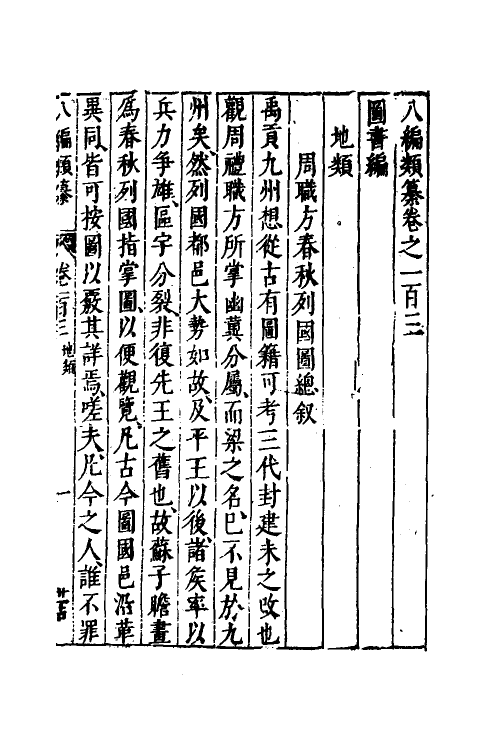 八編類纂卷之一百三
圖書編
地類
周職方春秋列國圖總叙
禹貢九州想從古有圖籍可考三代封建未之改也
觀周禮職方所掌幽冀分屬而梁之名已不見於九
州矣然列國都邑大勢如故及平王以後諸矦率以
兵力爭雄區宇分裂非復先王之舊也故蘇子瞻畫
爲春秋列國指掌圖以便觀覽凡古今圖國邑沿革
異同皆可按圖以覈其詳焉嗟夫凡今之人誰不罪
八編類纂 卷一百三 地類 一